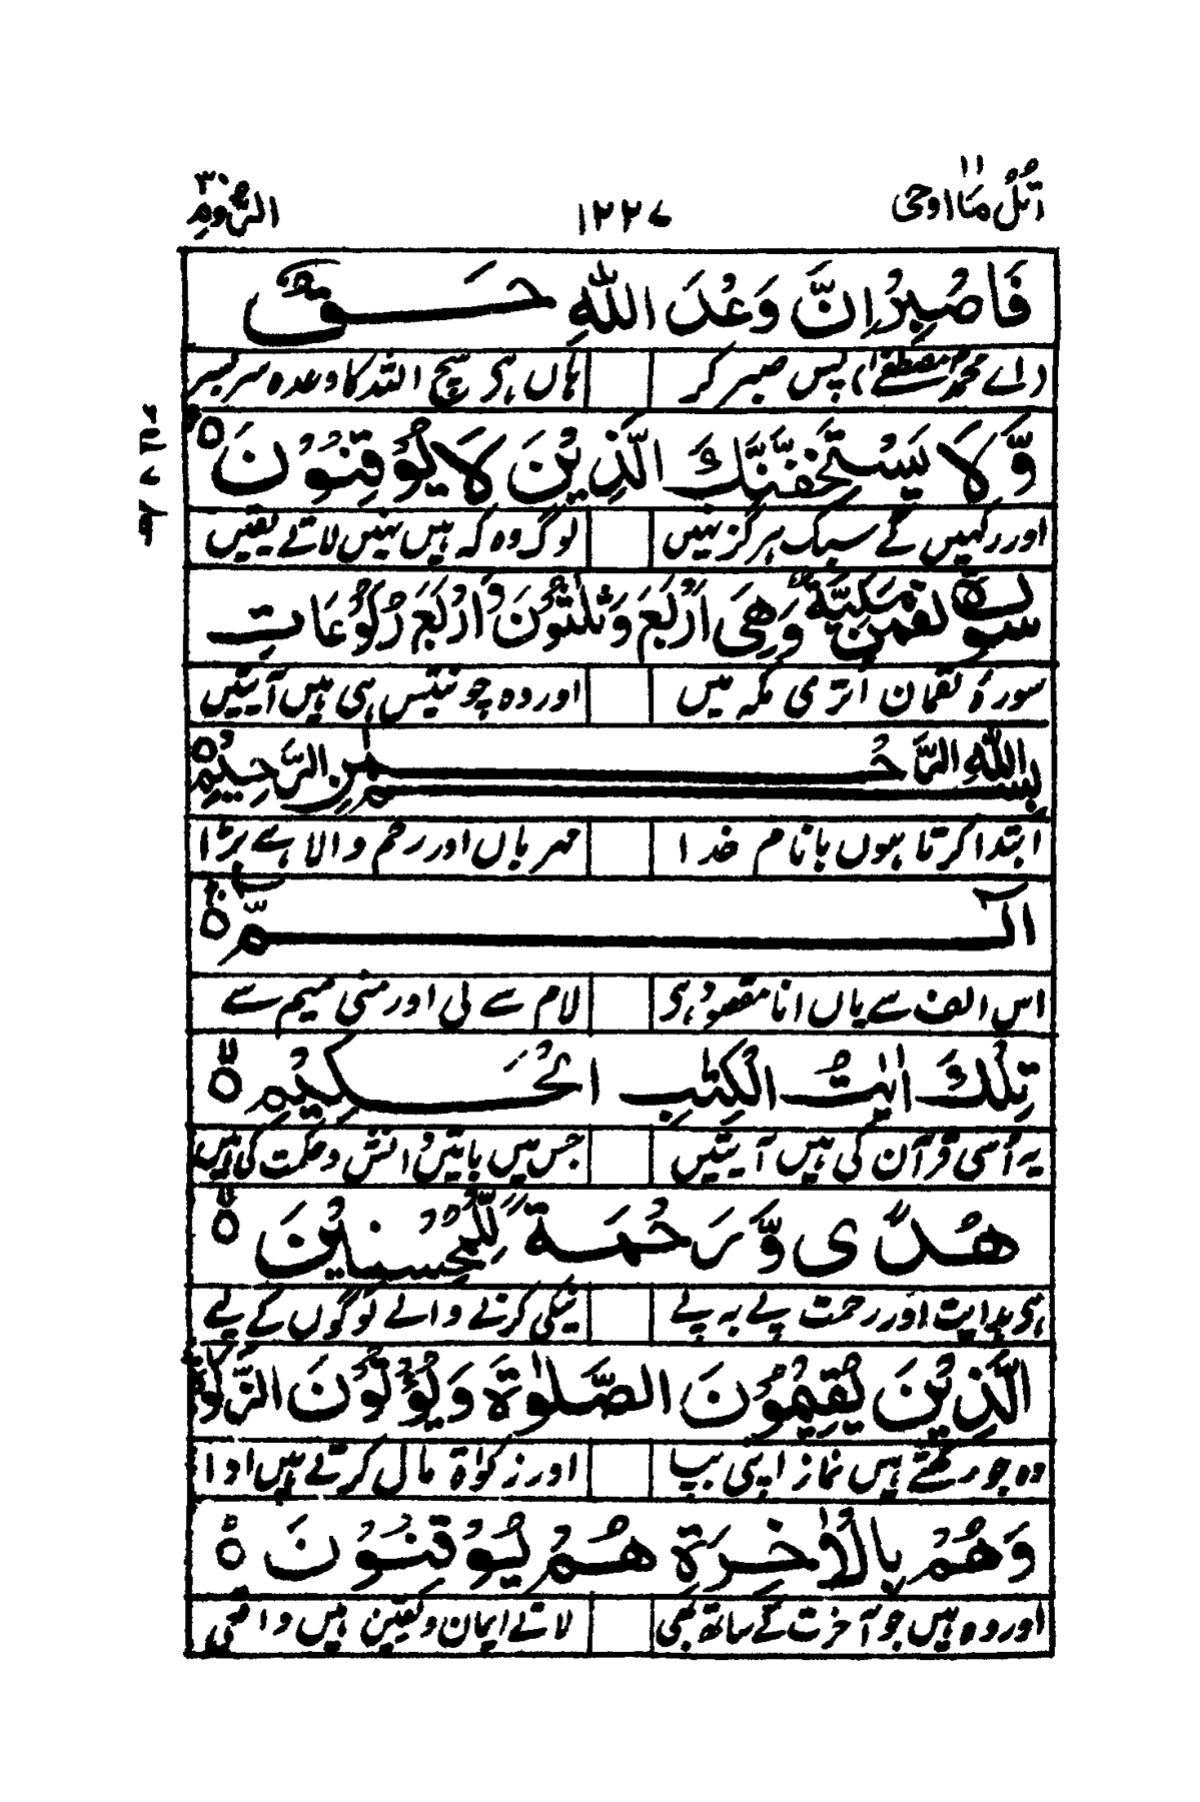 اتل ما اوحی ۲۱ ۱۲۲۷ الروم ۳۰
فَاصْبِرْ اِنَّ وَعْدَ اللّٰهِ حَقٌّ
(اے محمد مصطفےٰؐ) پس صبر کر ہاں ہی سچ اللہ کا وعدہ سربسر
وَّلَا یَسْتَخِفَّنَّكَ الَّذِیْنَ لَا یُوْقِنُوْنَ
اور کہیں کے سبک ہرگز نہیں لوگ وہ کہ ہیں نہیں لاتے یقیں
سورة لقمٰن مکیة وَّهِیَ اَرْبَعَ وَثَلٰثُوْنَ وَاَرْبَعَ رُكُوْعَاتٍ
سورۂ لقمان اُتری مکہ میں اور وہ چونتیس ہی ہیں آیتیں
بِسْمِ اللّٰهِ الرَّحْمٰنِ الرَّحِیْمِ
ابتدا کرتا ہوں با نام خدا مہرباں اور رحم والا ہے بڑا
الٓمّٓ
اس الف سے یاں انا مقصود ہی لام سے لی اور منی میم سے
تِلْكَ اٰیٰتُ الْكِتٰبِ الْحَكِیْمِ
یہ اُسی قرآن کی ہیں آیتیں جس میں باتیں دانش و حکمت کی ہیں
هُدًی وَّرَحْمَةً لِّلْمُحْسِنِیْنَ
ہی ہدایت اور رحمت پے بہ پے نیکی کرنے والے لوگوں کے لیے
الَّذِیْنَ یُقِیْمُوْنَ الصَّلٰوةَ وَیُؤْتُوْنَ الزَّكٰوةَ
وہ جو رکھتے ہیں نماز اپنی بپا اور زکوٰۃ مال کرتے ہیں ادا
وَهُمْ بِالْاٰخِرَةِ هُمْ یُوْقِنُوْنَ
اور وہ ہیں جو آخرت کے ساتھ بھی لاتے ایمان و یقین ہیں واقعی